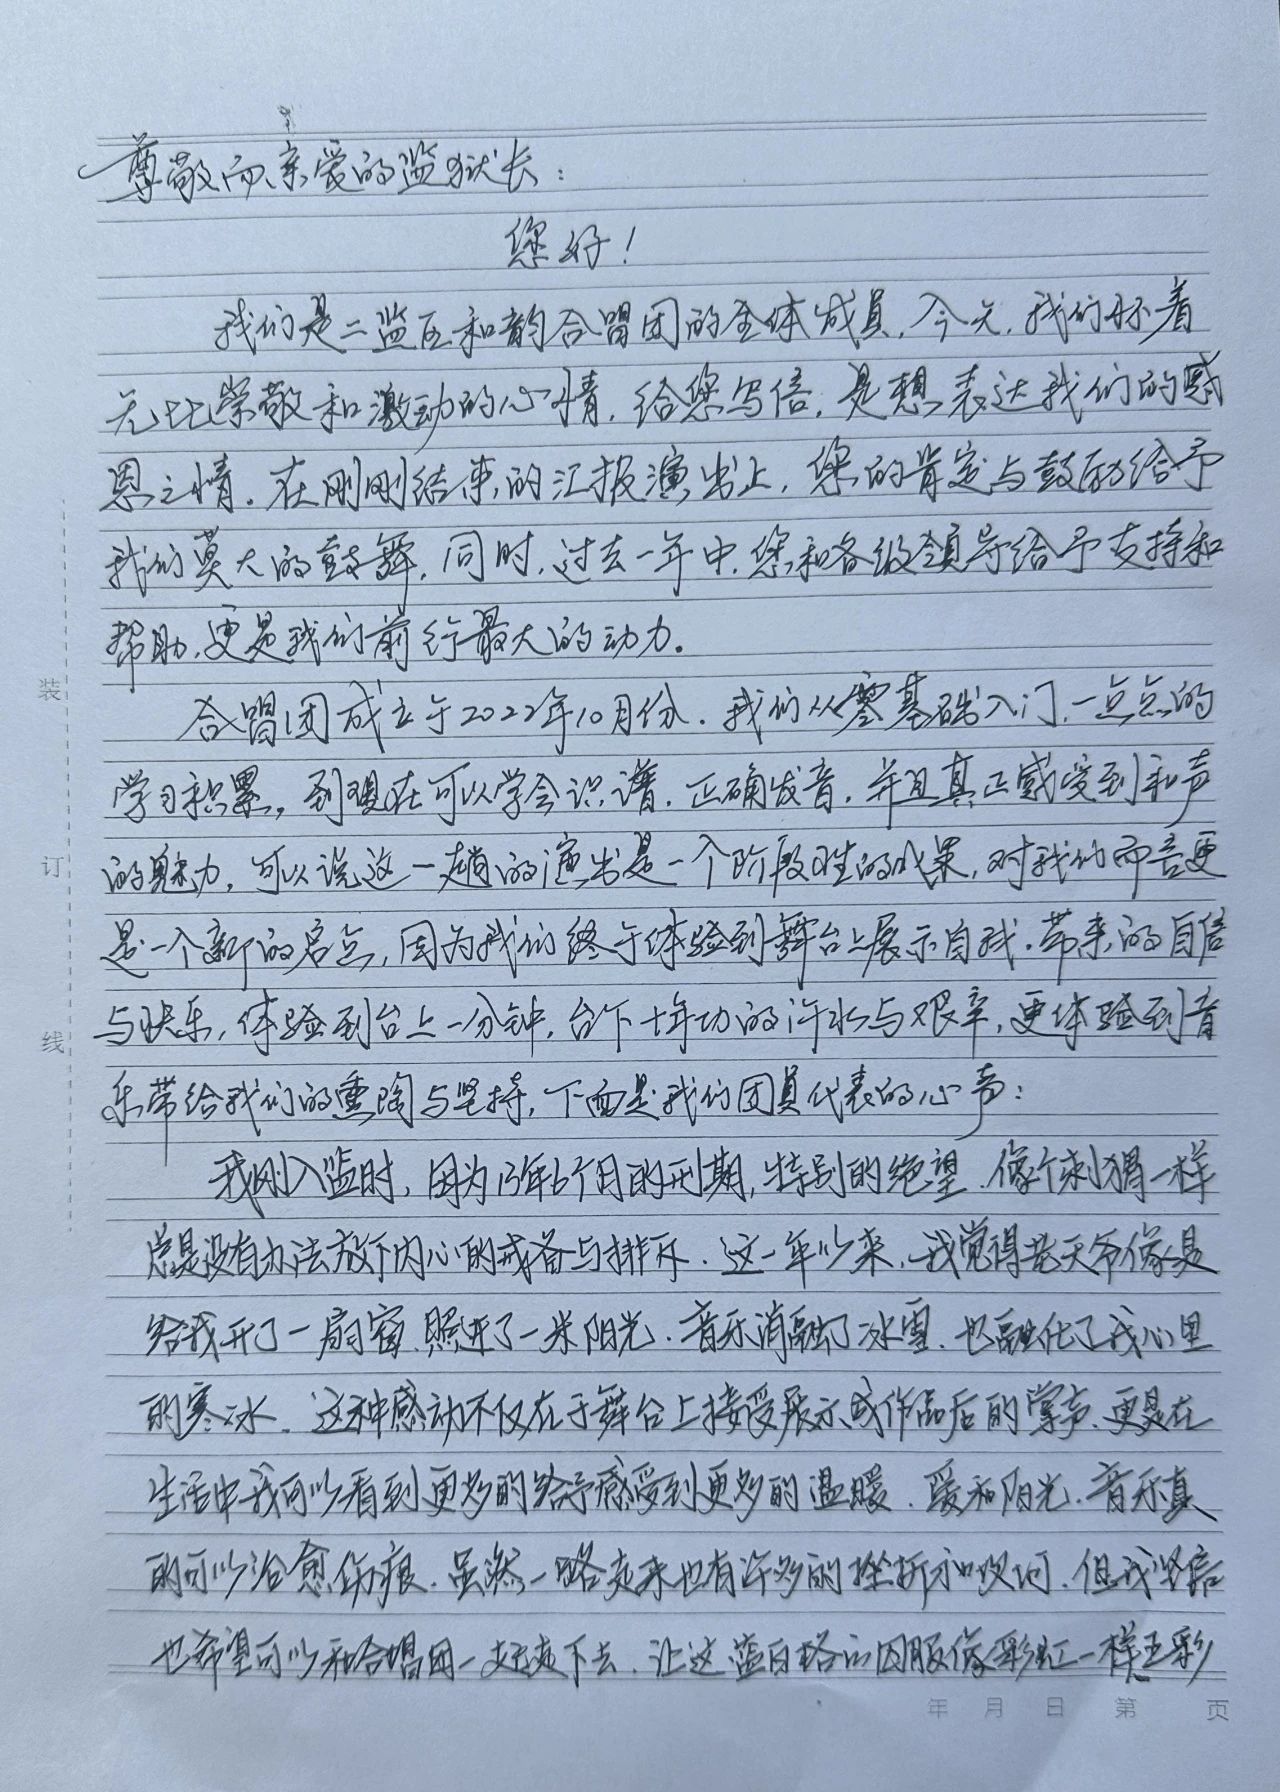 尊敬而亲爱的监狱长：
您好！
我们是二监区和韵合唱团的全体成员，今天，我们怀着
无比崇敬和激动的心情，给您写信，是想表达我们的感
恩之情。在刚刚结束的汇报演出上，您的肯定与鼓励给予
我们莫大的鼓舞，同时，过去一年中，您和各级领导给予支持和
帮助，更是我们前行最大的动力。
合唱团成立于2022年10月份，我们从零基础入门，一点点的
学习积累，到现在可以学会识谱，正确发音，并且真正感受到和声
的魅力，可以说这一趟的演出是一个阶段性的成果，对我们而言更
是一个新的启点，因为我们终于体验到舞台上展示自我，带来的自信
与快乐，体验到台上一分钟，台下十年功的汗水与艰辛，更体验到音
乐带给我们的熏陶与坚持，下面是我们团员代表的心声：
我刚入监时，因为13年6个月的刑期，特别的绝望，像个刺猬一样
总是没有办法放下内心的戒备与排斥，这一年以来，我觉得老天爷像是
给我开了一扇窗，照进了一米阳光，音乐消融了冰雪，也融化了我心里
的寒冰，这种感动不仅在于舞台上接受展示或作品后的掌声，更是在
生活中我可以看到更多的给予感受到更多的温暖，爱和阳光，音乐真
的可以治愈伤痕，虽然一路走来也有许多的挫折和坎坷，但我坚信
也希望可以和合唱团一起走下去，让这蓝白格的囚服像彩虹一样五彩
装
订
线
年 月 日 第 页